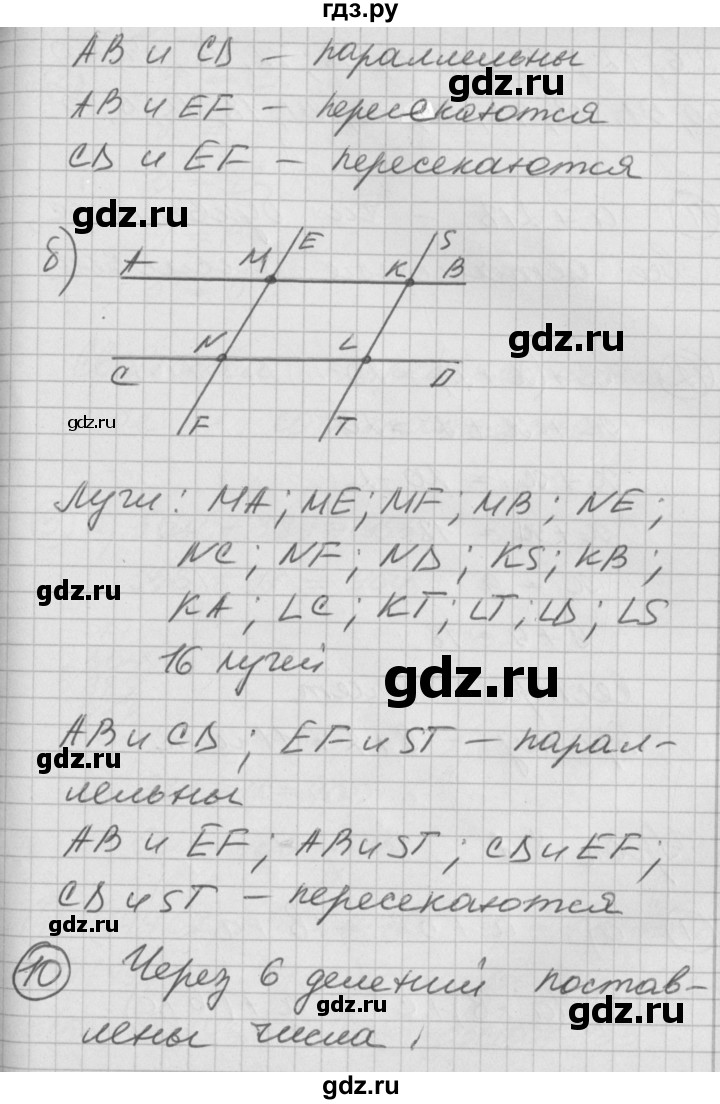 гдз.ру
AB и CD – параллельны
gdz.ru
AB и EF – пересекаются
CD и EF – пересекаются
gdz.ru
б)
E S
A M K B
gdz.ru
N L
C D
gdz.ru
F T
Лучи: MA; ME; MF; MB; NE;
NC; NF; ND; KS; KB;
gdz.ru
KA; LC; KT; LT; LD; LS
16 лучей
gdz.ru
AB и CD; EF и ST – парал-
gdz.ru
лельны
AB и EF; AB и ST; CD и EF;
CD и ST – пересекаются
gdz.ru
10 Через 6 делений постав-
gdz.ru
лены числа,
gdz.ru